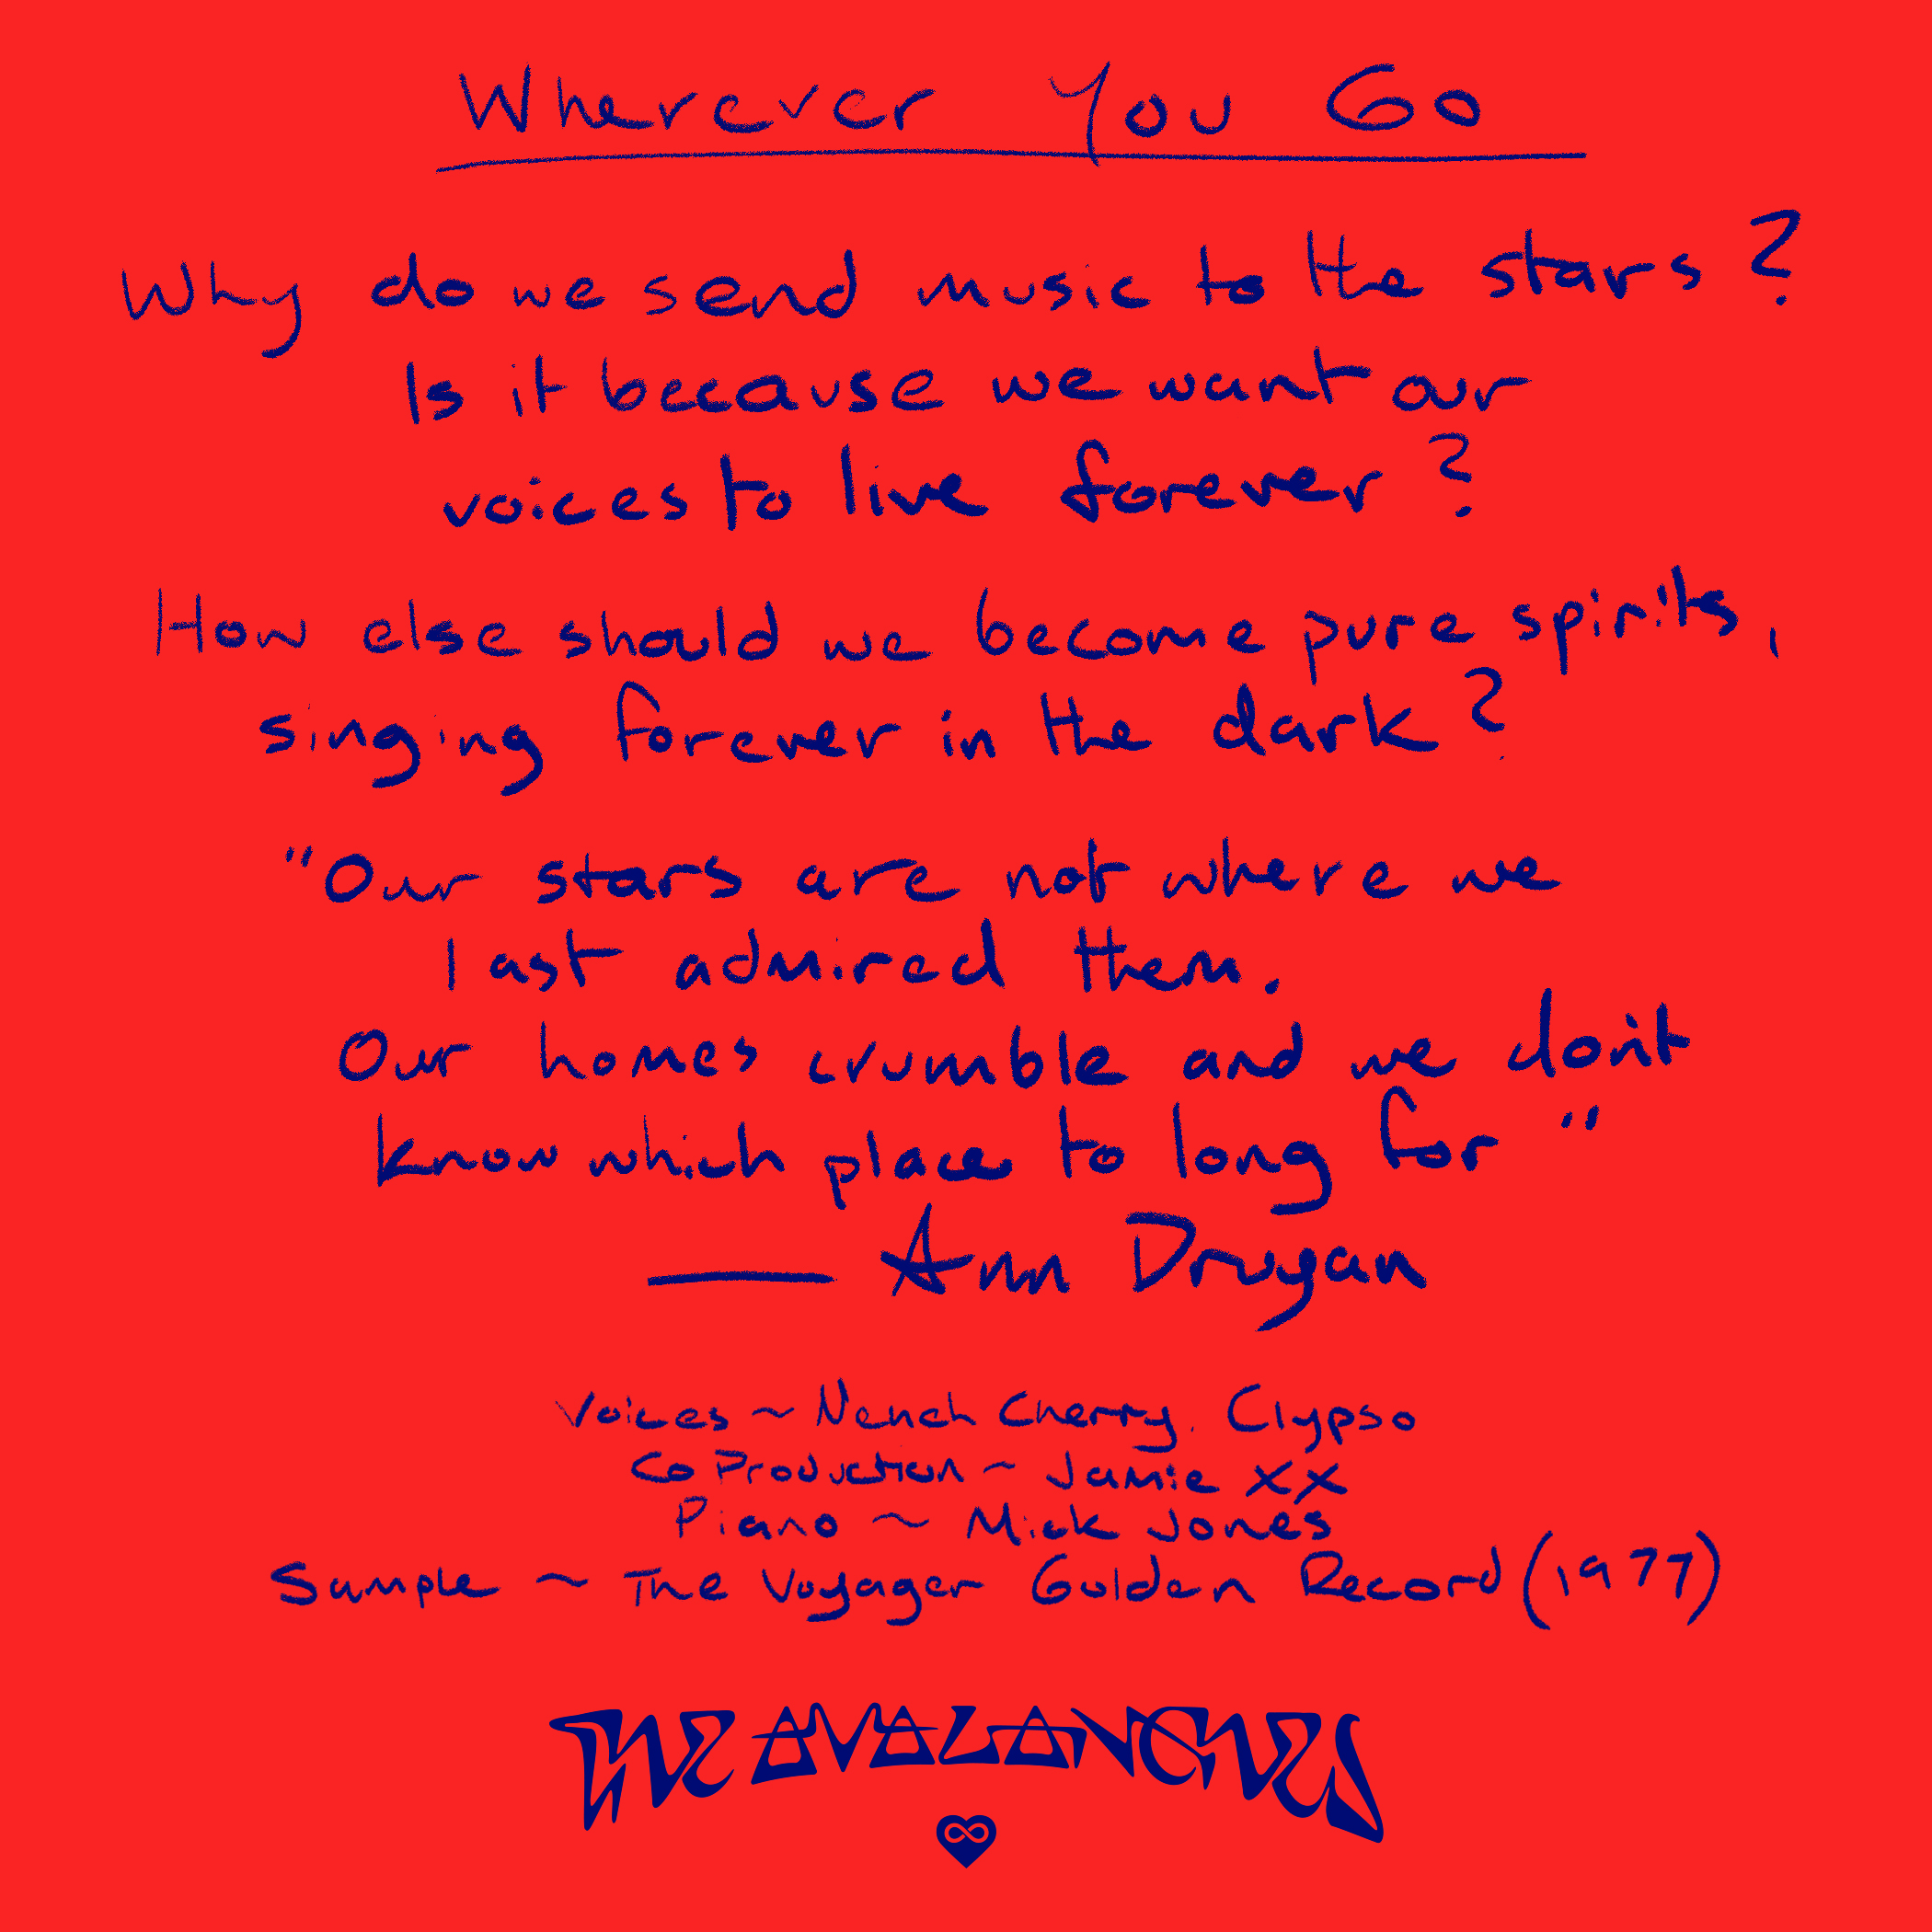 Wherever You Go
Why do we send music to the stars?
Is it because we want our
voices to live forever?
How else should we become pure spirits,
singing forever in the dark?
"Our stars are not where we
last admired them.
Our homes crumble and we don't
know which place to long for"
— Ann Druyan
Voices ~ Neneh Cherry, Clypso
Co Production ~ Jamie xx
Piano ~ Mick Jones
Sample ~ The Voyager Golden Record (1977)
THE AVALANCHES